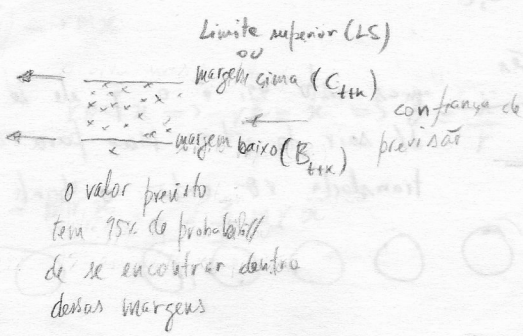 Limite superior (LS)
ou
margem cima (C t+n)
confiança de
previsão
margem baixo (B t+x)
o valor previsto
tem 95% de probabili//
de se encontrar dentro
dessas margens